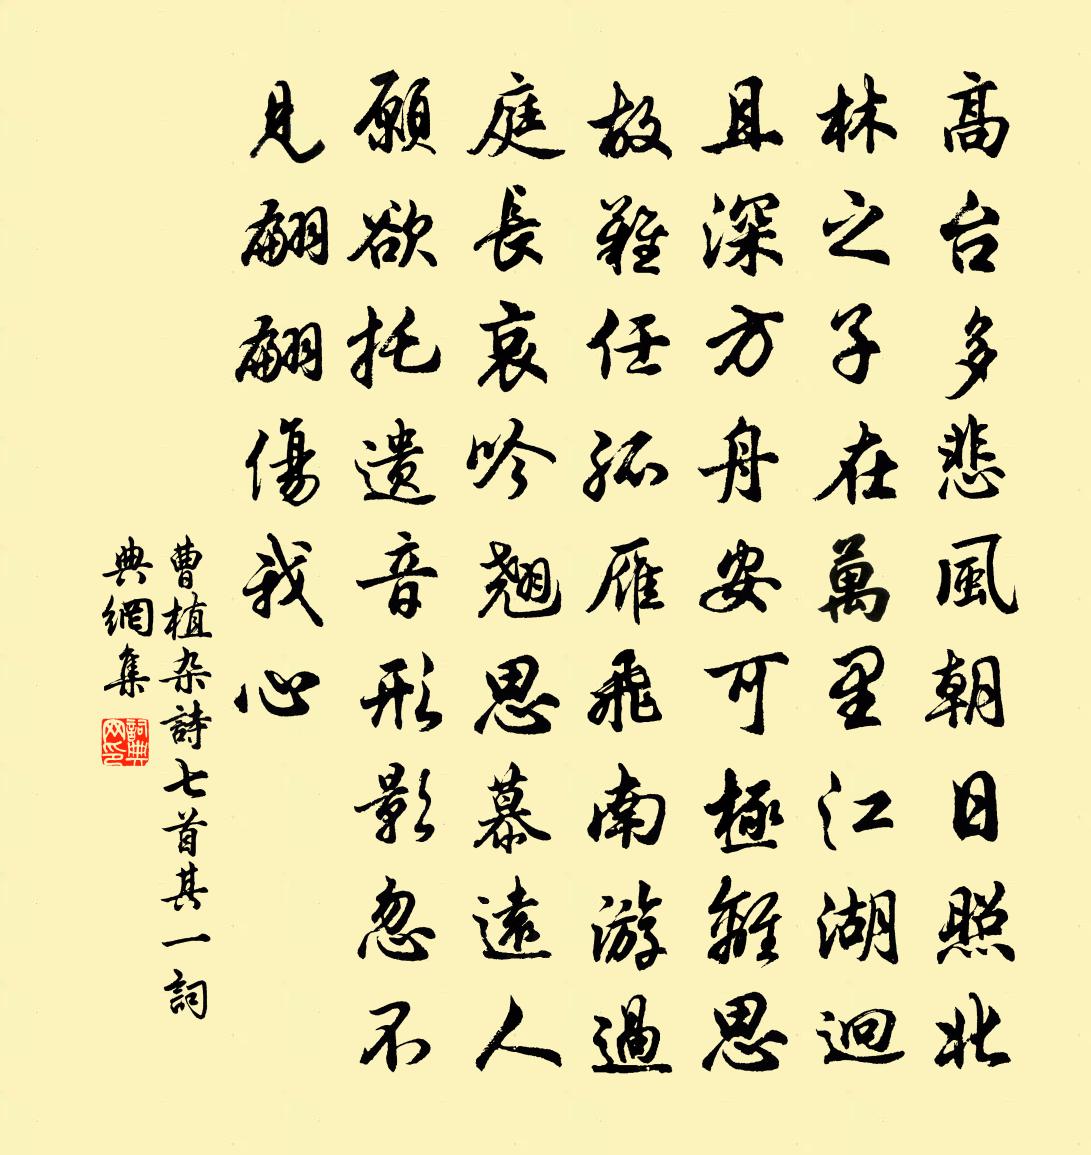 高台多悲風朝日照北
林之子在萬里江湖迥
且深方舟安可極離思
故難任孤雁飛南游過
庭長哀吟翹思慕遠人
願欲托遺音形影忽不
見翩翩傷我心
曹植杂詩七首其一詞
典網集
詞典
网印